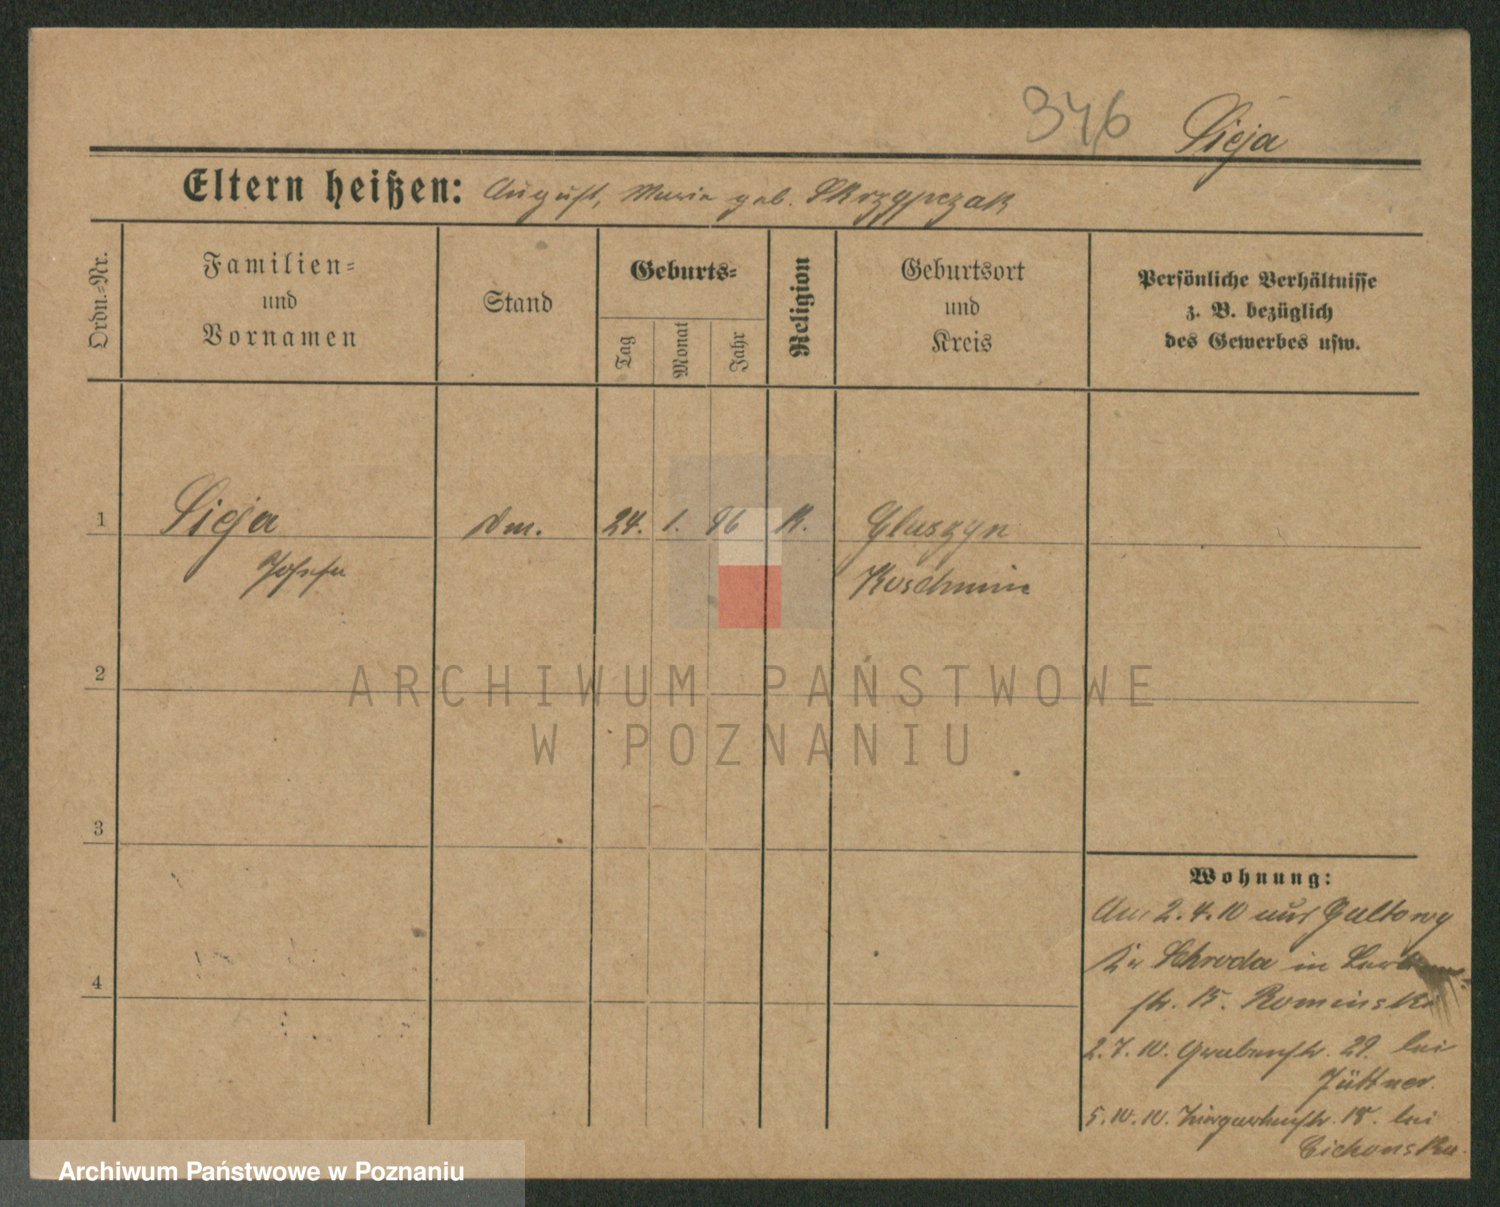 376 Sieja
Eltern heißen: August, Maria geb. Skrzypczak
Ordn.-Nr.
Familien-
und
Vornamen
Stand
Geburts-
Tag
Monat
Jahr
Religion
Geburtsort
und
Kreis
Persönliche Verhältnisse
z. B. bezüglich
des Gewerbes usw.
1 Sieja 24. 1. 96 K. Gluszyn
Josefa Koschmin
2
3
4
Wohnung:
Am 2.4.10 aus Gultowy
Kr Schroda in
str. 15. Rominski
2.7.10. Grabenstr. 29. bei
Jüttner.
5.10.10. 18. bei
Cichonska.
ARCHIWUM PAŃSTWOWE
W POZNANIU
Archiwum Państwowe w Poznaniu